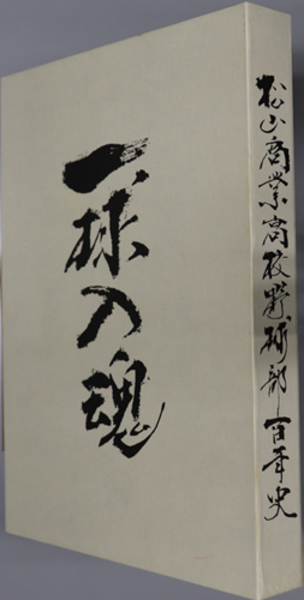 一球入魂
松山商業高校野球部百年史